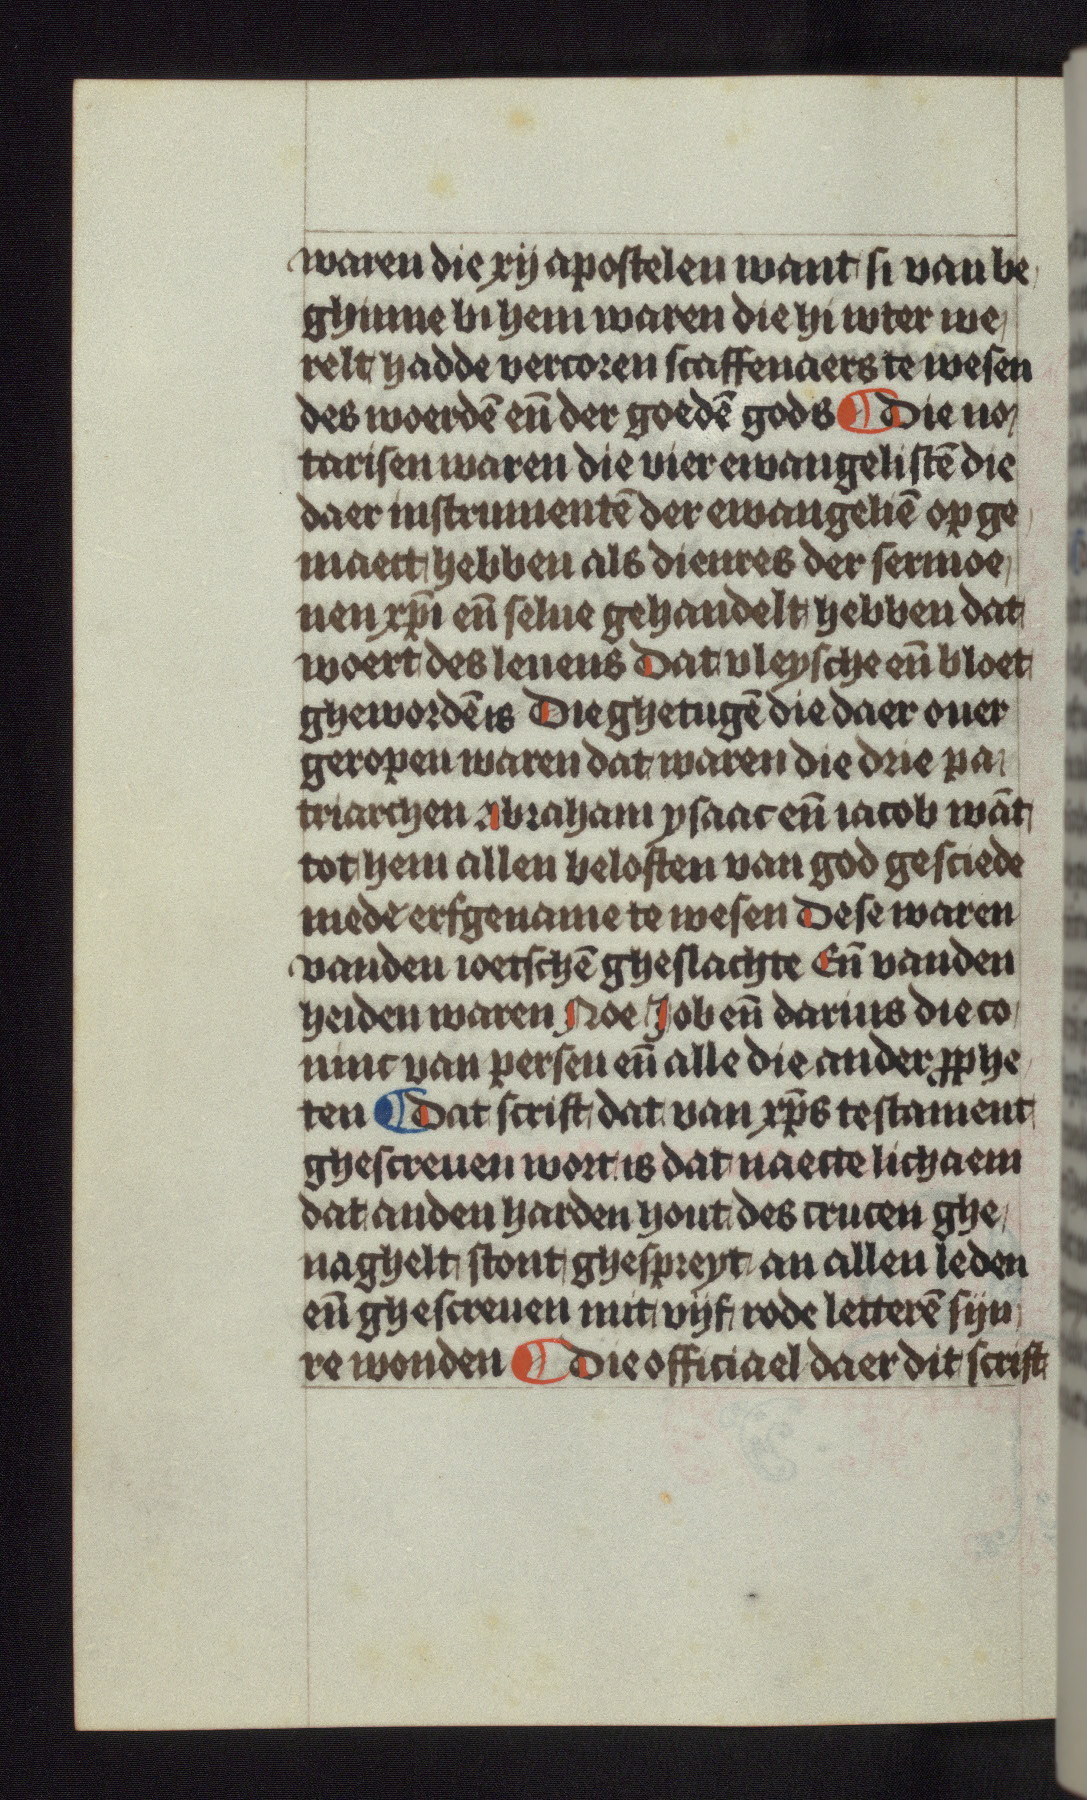 waren die xij apostelen want si van be,
ghinne bi hem waren die hi wter we,
relt hadde vercoren scaffenaers te wesen
des woerdē en̄ der goedē gods ¶ Die no,
tarisen waren die vier ewangelistē die
daer instrumentē der ewangeliē op ge,
maect hebben als dienres der sermoe,
nen xp̄i en̄ selue gehandelt hebben dat
woert des leuens Dat vleysche en̄ bloet
ghewordē is Die ghetugē die daer ouer
geropen waren dat waren die drie pa,
triarchen Abraham ysaac en̄ iacob wāt
tot hem allen beloften van god gesciede
mede erfgename te wesen Dese waren
vanden ioetschē gheslachte En̄ vanden
heiden waren Noe Job en̄ darius die co,
ninc van persen en̄ alle die ander ꝓphe,
ten ¶ Dat scrift dat van xp̄s testament
ghescreuen wort is dat naecte lichaem
dat anden harden hout des crucen ghe,
naghelt stont ghespreyt an allen leden
en̄ ghescreuen mit vijf rode letterē sijn,
re wonden ¶ Die officiael daer dit scrift